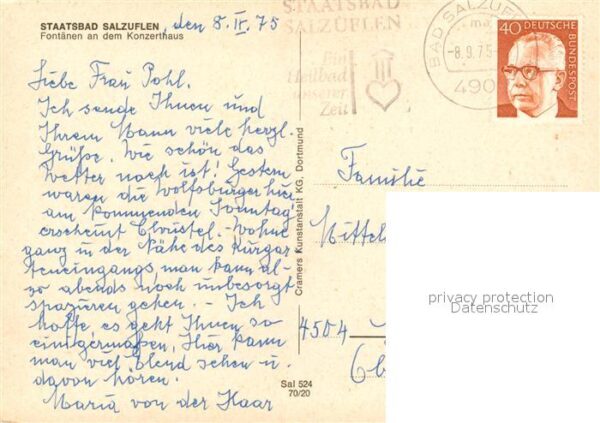 STAATSBAD SALZUFLEN
Fontänen an dem Konzerthaus
, den 8. IX. 75
Liebe Frau Pohl.
Ich sende Ihnen und
Ihrem Mann viele herzl.
Grüße. Wie schön das
Wetter noch ist! Gestern
waren die Wolfsburger hier
am kommenden Sonntag
erscheint Christel. - Wohne
ganz in der Nähe des Kurgar-
teneingangs, man kann al-
so abends noch unbesorgt
spazieren gehen. - Ich
hoffe, es geht Ihnen so
einigermaßen, Hier kann
man viel Elend sehen u.
davon hören.
Maria von der Haar
Cramers Kunstanstalt KG, Dortmund
Sal 524
70/20
STAATSBAD
SALZUFLEN
Ein
Heilbad
unserer
Zeit
BAD SALZUF
-8.9.75-
490
40 DEUTSCHE
BUNDESPOST
Familie
Mittel
4504
privacy protection
Datenschutz